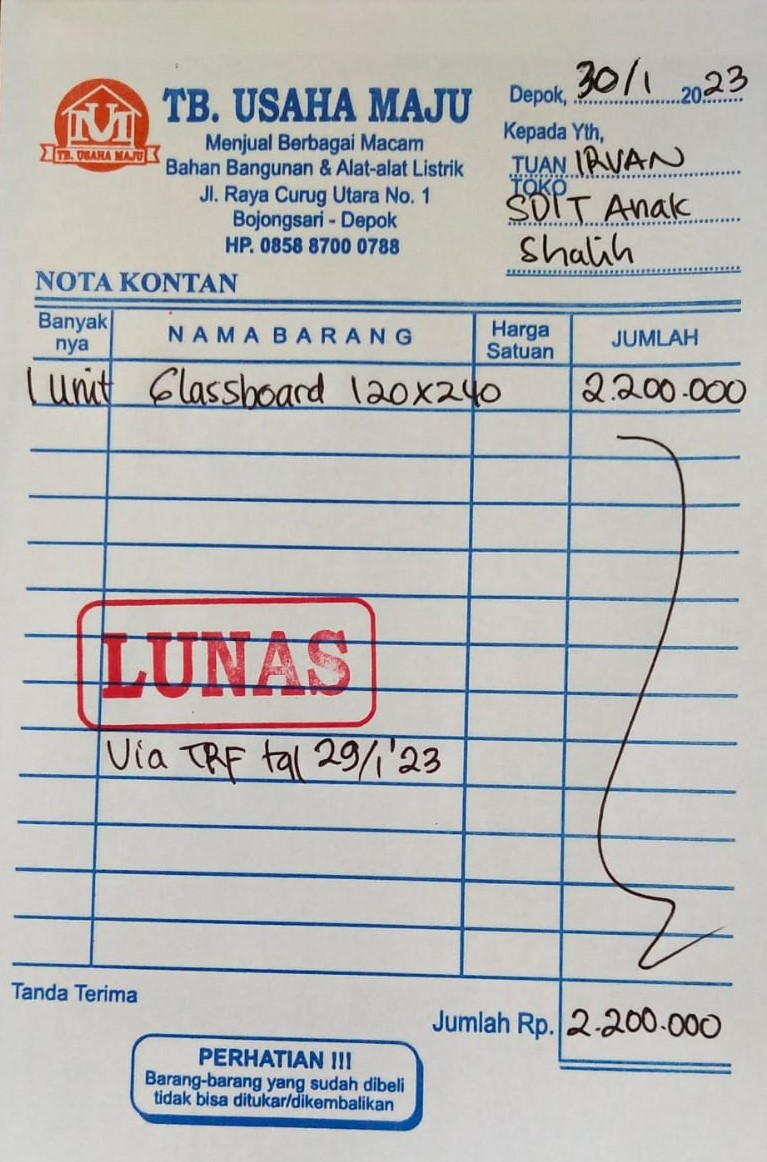 TB. USAHA MAJU
TB. USAHA MAJU
Menjual Berbagai Macam
Bahan Bangunan & Alat-alat Listrik
Jl. Raya Curug Utara No. 1
Bojongsari - Depok
HP. 0858 8700 0788
Depok, 30/1 2023
Kepada Yth,
TUAN IRVAN
TOKO
SDIT Anak
Shalih
NOTA KONTAN
Banyak nya NAMA BARANG Harga Satuan JUMLAH
1 Unit Glassboard 120x240 2.200.000
LUNAS
Via TRF tgl 29/1'23
Tanda Terima
Jumlah Rp. 2.200.000
PERHATIAN !!!
Barang-barang yang sudah dibeli
tidak bisa ditukar/dikembalikan